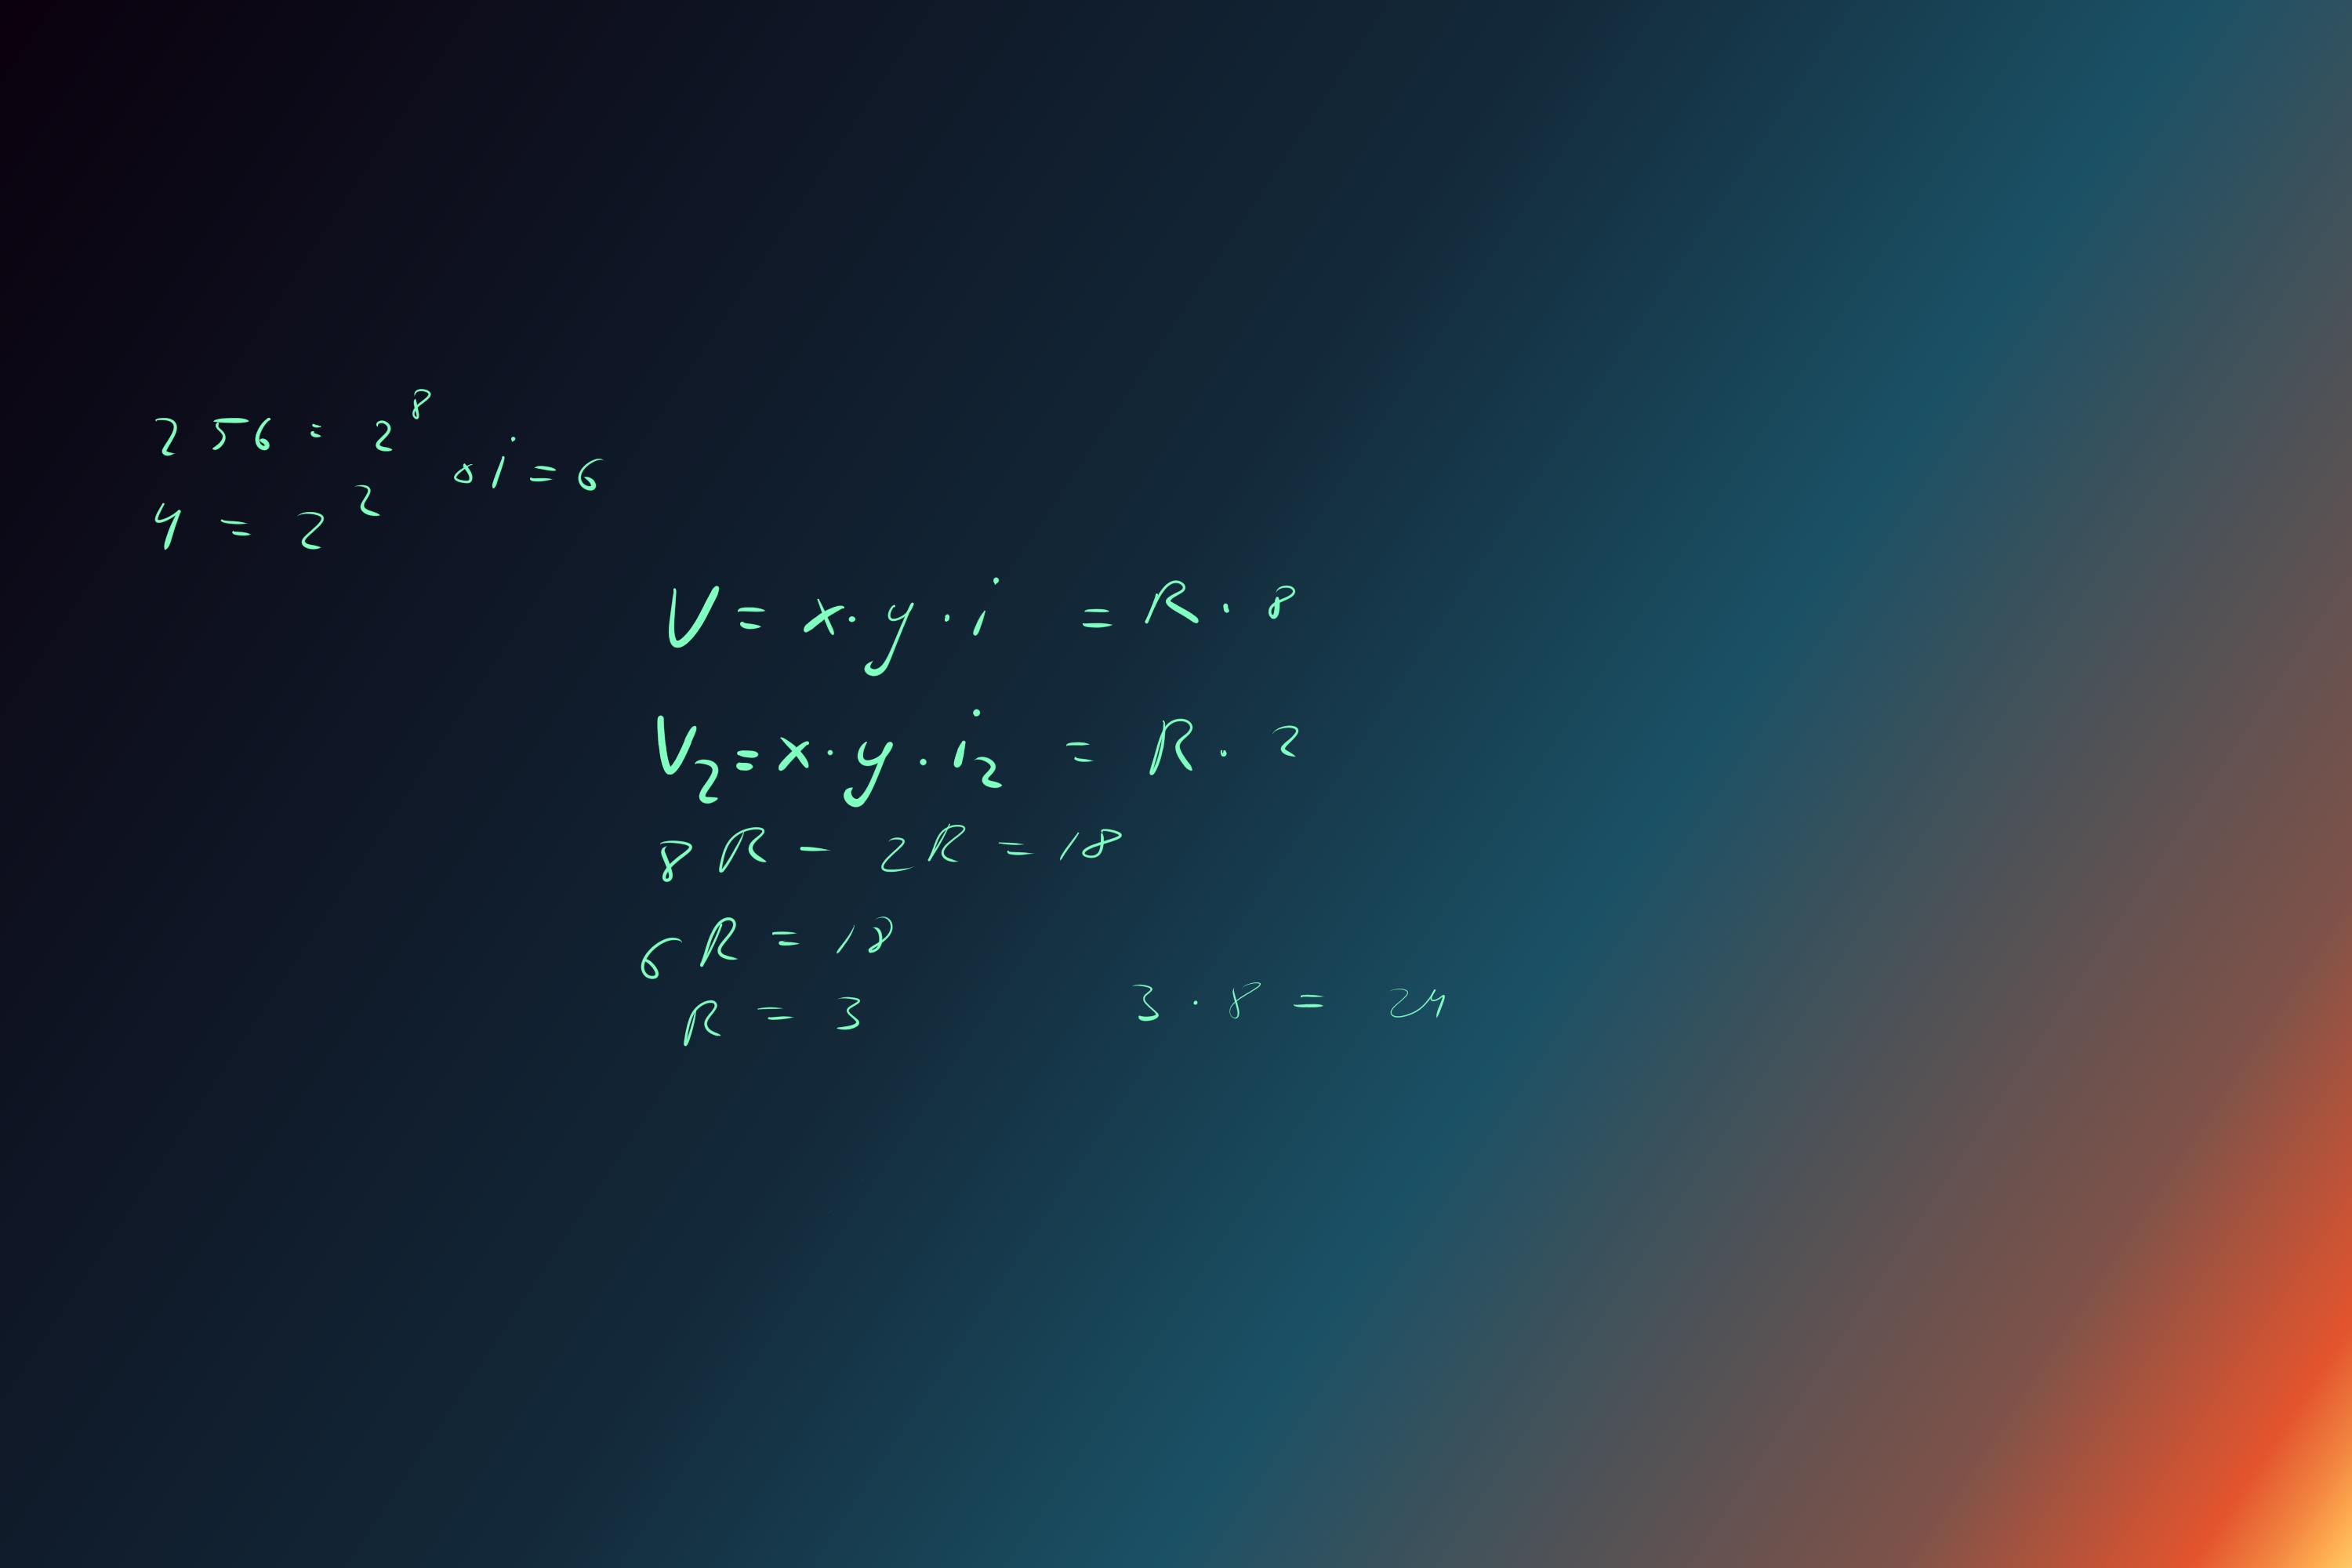 256 = 2⁸
Δi = 6
4 = 2²
V = x · y · i = R · 8
V₂ = x · y · i₂ = R · 2
8R - 2R = 18
6R = 18
R = 3 3 · 8 = 24